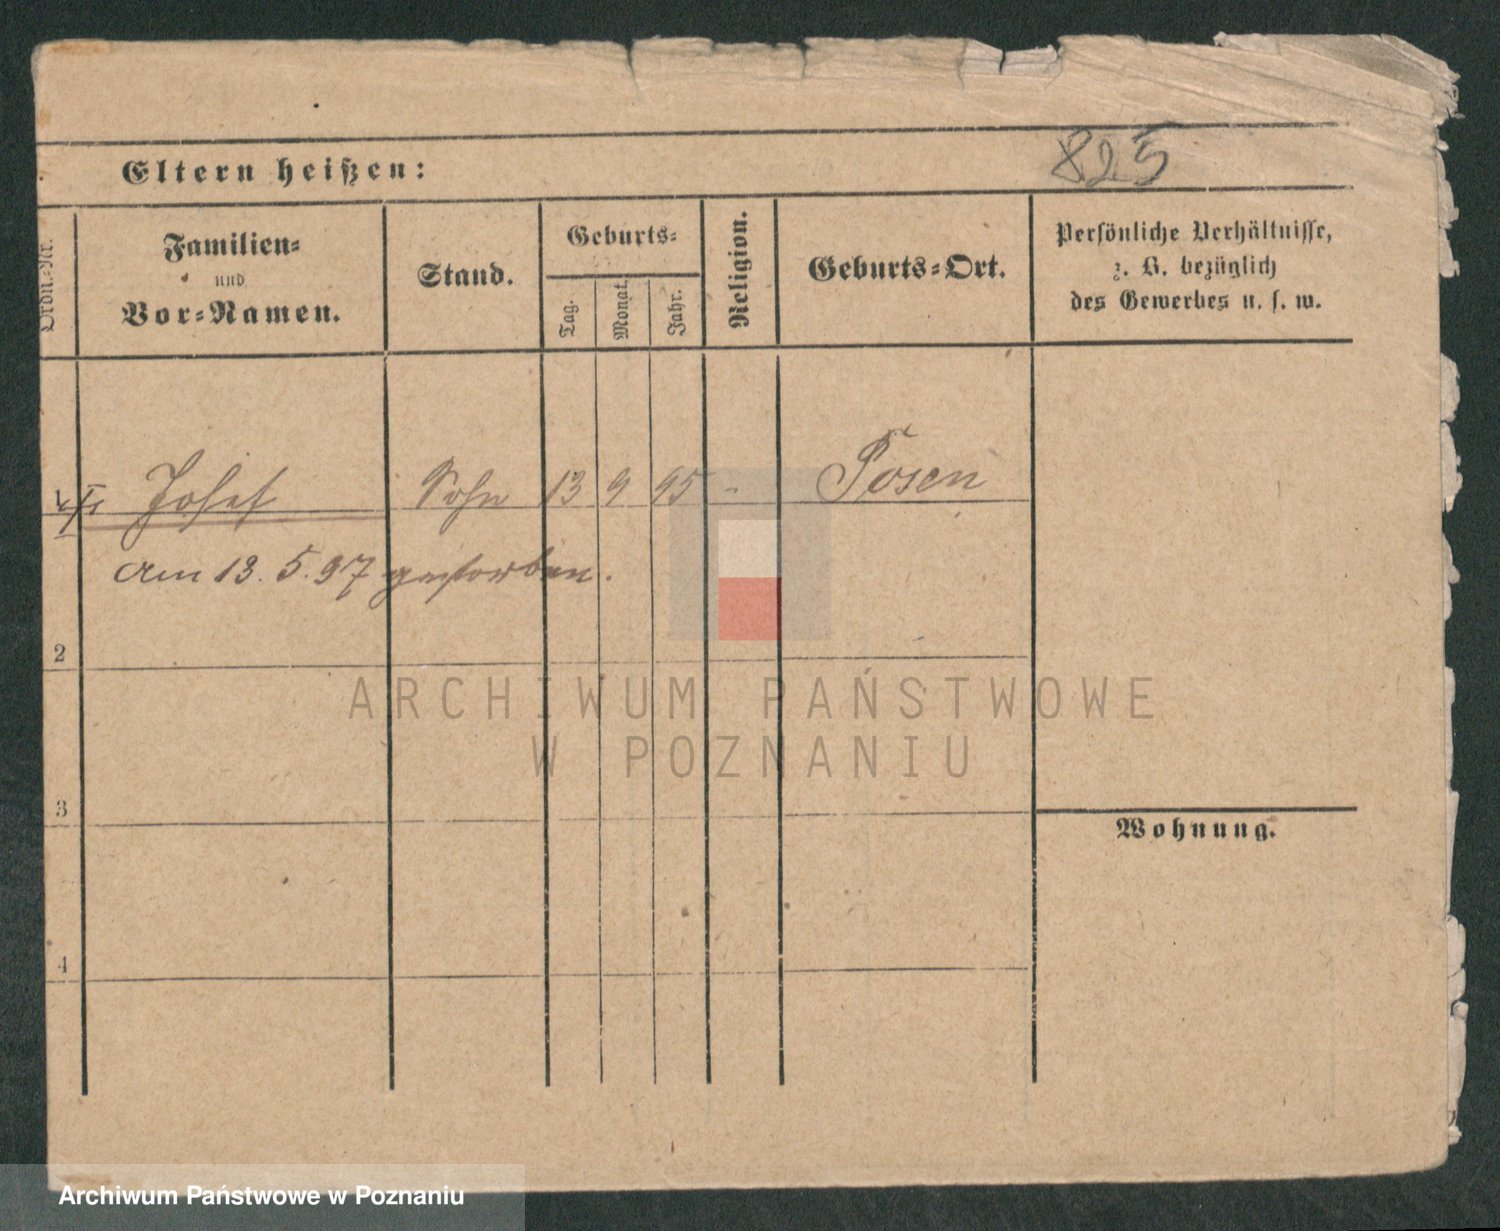 825
Eltern heißen:
Ordn.-Nr.
Familien-
und
Vor-Namen.
Stand.
Geburts-
Tag.
Monat.
Jahr.
Religion.
Geburts-Ort.
Persönliche Verhältnisse,
z. B. bezüglich
des Gewerbes u. s. w.
Josef Sohn 13 9 95 - Posen
am 13. 5. 97 gestorben.
2
3
4
Wohnung.
ARCHIWUM PAŃSTWOWE
W POZNANIU
Archiwum Państwowe w Poznaniu